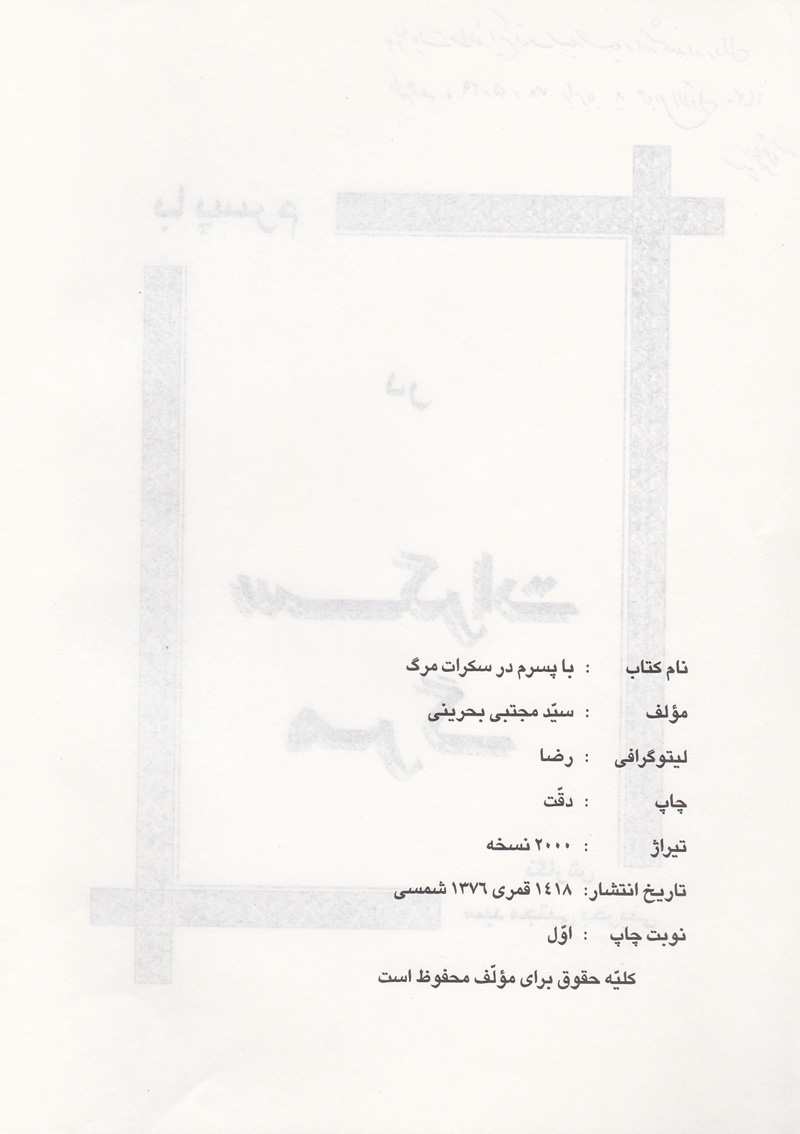 نام کتاب : با پسرم در سکرات مرگ
مؤلف : سیّد مجتبی بحرینی
لیتوگرافی : رضا
چاپ : دقّت
تیراژ : ۲۰۰۰ نسخه
تاریخ انتشار: ١٤١٨ قمری ١٣٧٦ شمسی
نوبت چاپ : اوّل
کلیّه حقوق برای مؤلّف محفوظ است